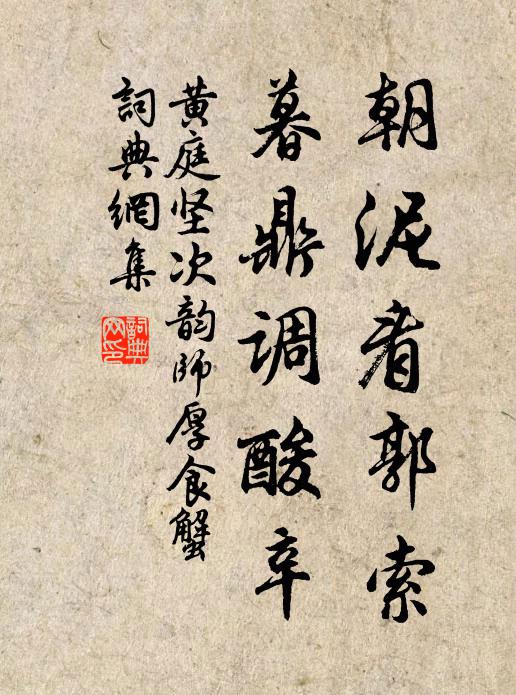 朝泥看郭索
暮鼎调酸辛
黄庭坚次韵師厚食蟹
詞典網集
詞典
网印